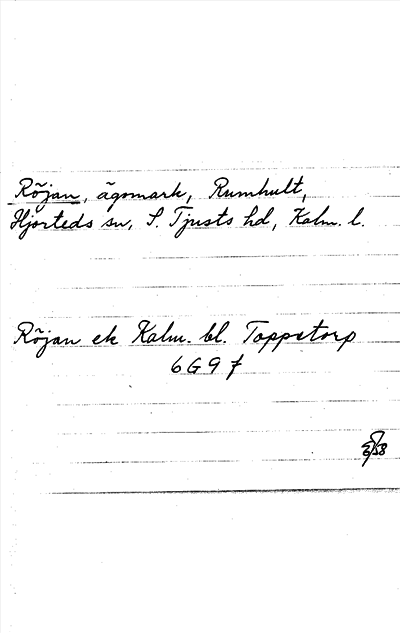 Röjan, ägomark, Rumhult,
Hjorteds sn, S. Tjusts hd, Kalm. l.
Röjan ek Kalm. bl. Toppetorp
6G9f